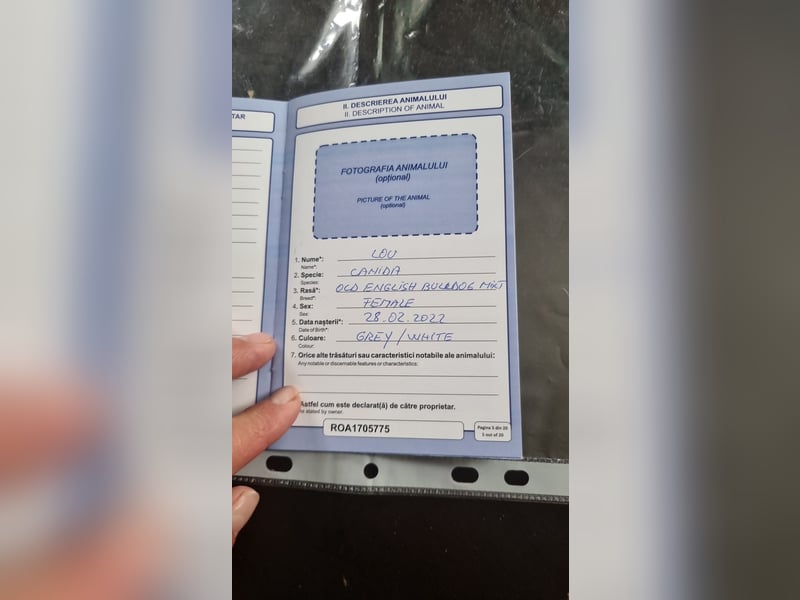 TAR
II. DESCRIEREA ANIMALULUI
II. DESCRIPTION OF ANIMAL
FOTOGRAFIA ANIMALULUI
(opțional)
PICTURE OF THE ANIMAL
(optional)
1. Nume*: LOU
Name*:
2. Specie: CANIDA
Species:
3. Rasă*: OLD ENGLISH BULLDOG MIXT
Breed*:
4. Sex: FEMALE
Sex:
5. Data nașterii*: 28.02.2022
Date of Birth*:
6. Culoare: GREY/WHITE
Colour:
7. Orice alte trăsături sau caracteristici notabile ale animalului:
Any notable or discernable features or characteristics:
Astfel cum este declarat(ă) de către proprietar.
as stated by owner.
ROA1705775
Pagina 5 din 20
5 out of 20